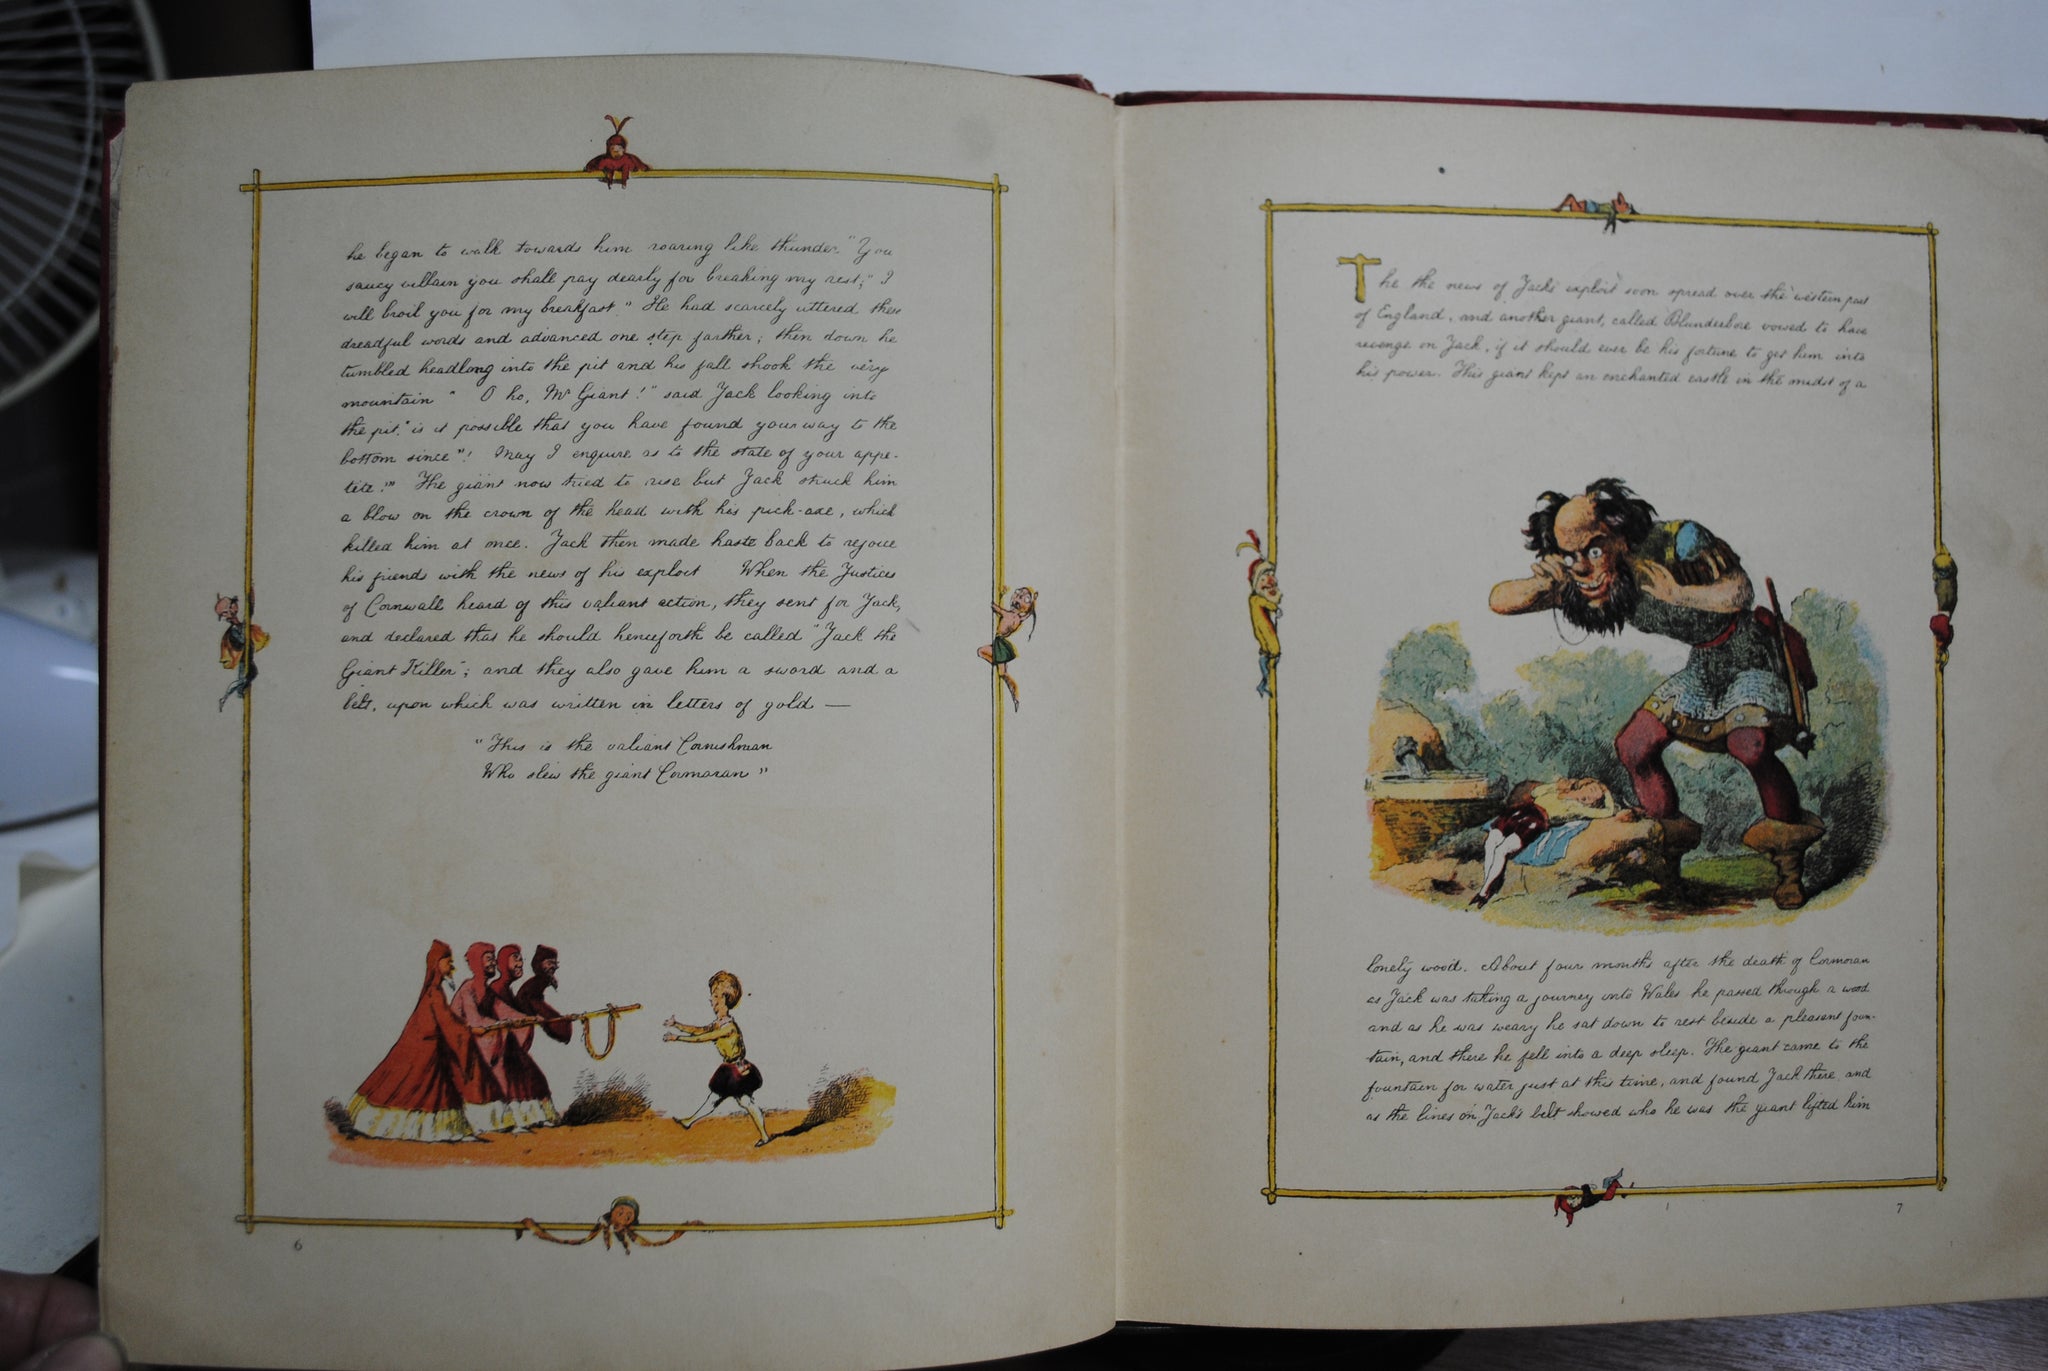 he began to walk towards him roaring like thunder. "You
saucy villain you shall pay dearly for breaking my rest;" I
will broil you for my breakfast." He had scarcely uttered these
dreadful words and advanced one step farther; then down he
tumbled headlong into the pit and his fall shook the very
mountain " O ho, Mr Giant!" said Jack looking into
the pit." is it possible that you have found your way to the
bottom since"! May I enquire as to the state of your appe-
tite?" The giant now tried to rise but Jack struck him
a blow on the crown of the head with his pick-axe, which
killed him at once. Jack then made haste back to rejoice
his friends with the news of his exploit When the Justices
of Cornwall heard of this valiant action, they sent for Jack,
and declared that he should henceforth be called "Jack the
Giant Killer"; and they also gave him a sword and a
belt, upon which was written in letters of gold —
"This is the valiant Cornishman
Who slew the giant Cormoran"
6
The the news of Jack's exploit soon spread over the western part
of England, and another giant, called Blunderbore vowed to have
revenge on Jack, if it should ever be his fortune to get him into
his power. This giant kept an enchanted castle in the midst of a
lonely wood. About four months after the death of Cormoran
as Jack was taking a journey into Wales he passed through a wood
and as he was weary he sat down to rest beside a pleasant foun-
tain, and there he fell into a deep sleep. The giant came to the
fountain for water just at this time, and found Jack there and
as the lines on Jack's belt showed who he was the giant lifted him
7